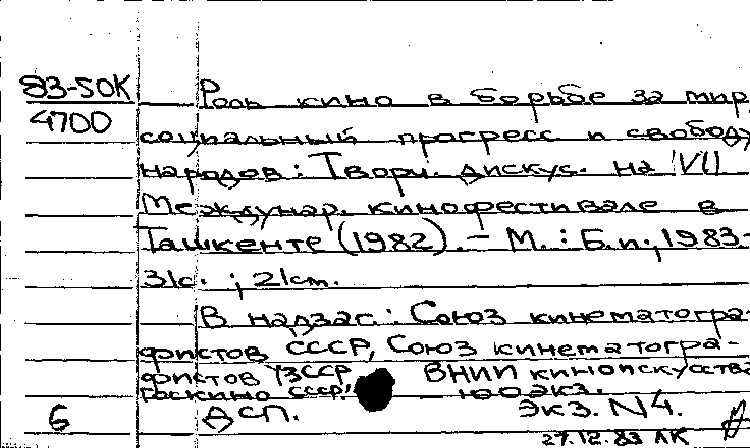 83-50К
4700
Роль кино в борьбе за мир,
социальный прогресс и свободу
народов: Творч. дискус. на VII
Междунар. кинофестивале в
Ташкенте (1982). - М. : Б.и., 1983.-
31с. ; 21см.
В надзаг.: Союз кинематогра-
фистов СССР, Союз кинематогра-
фистов УзССР ВНИИ киноискусства
Госкино СССР. 100 экз.
6 ДСП. Экз. N4.
27.12.83 ЛК